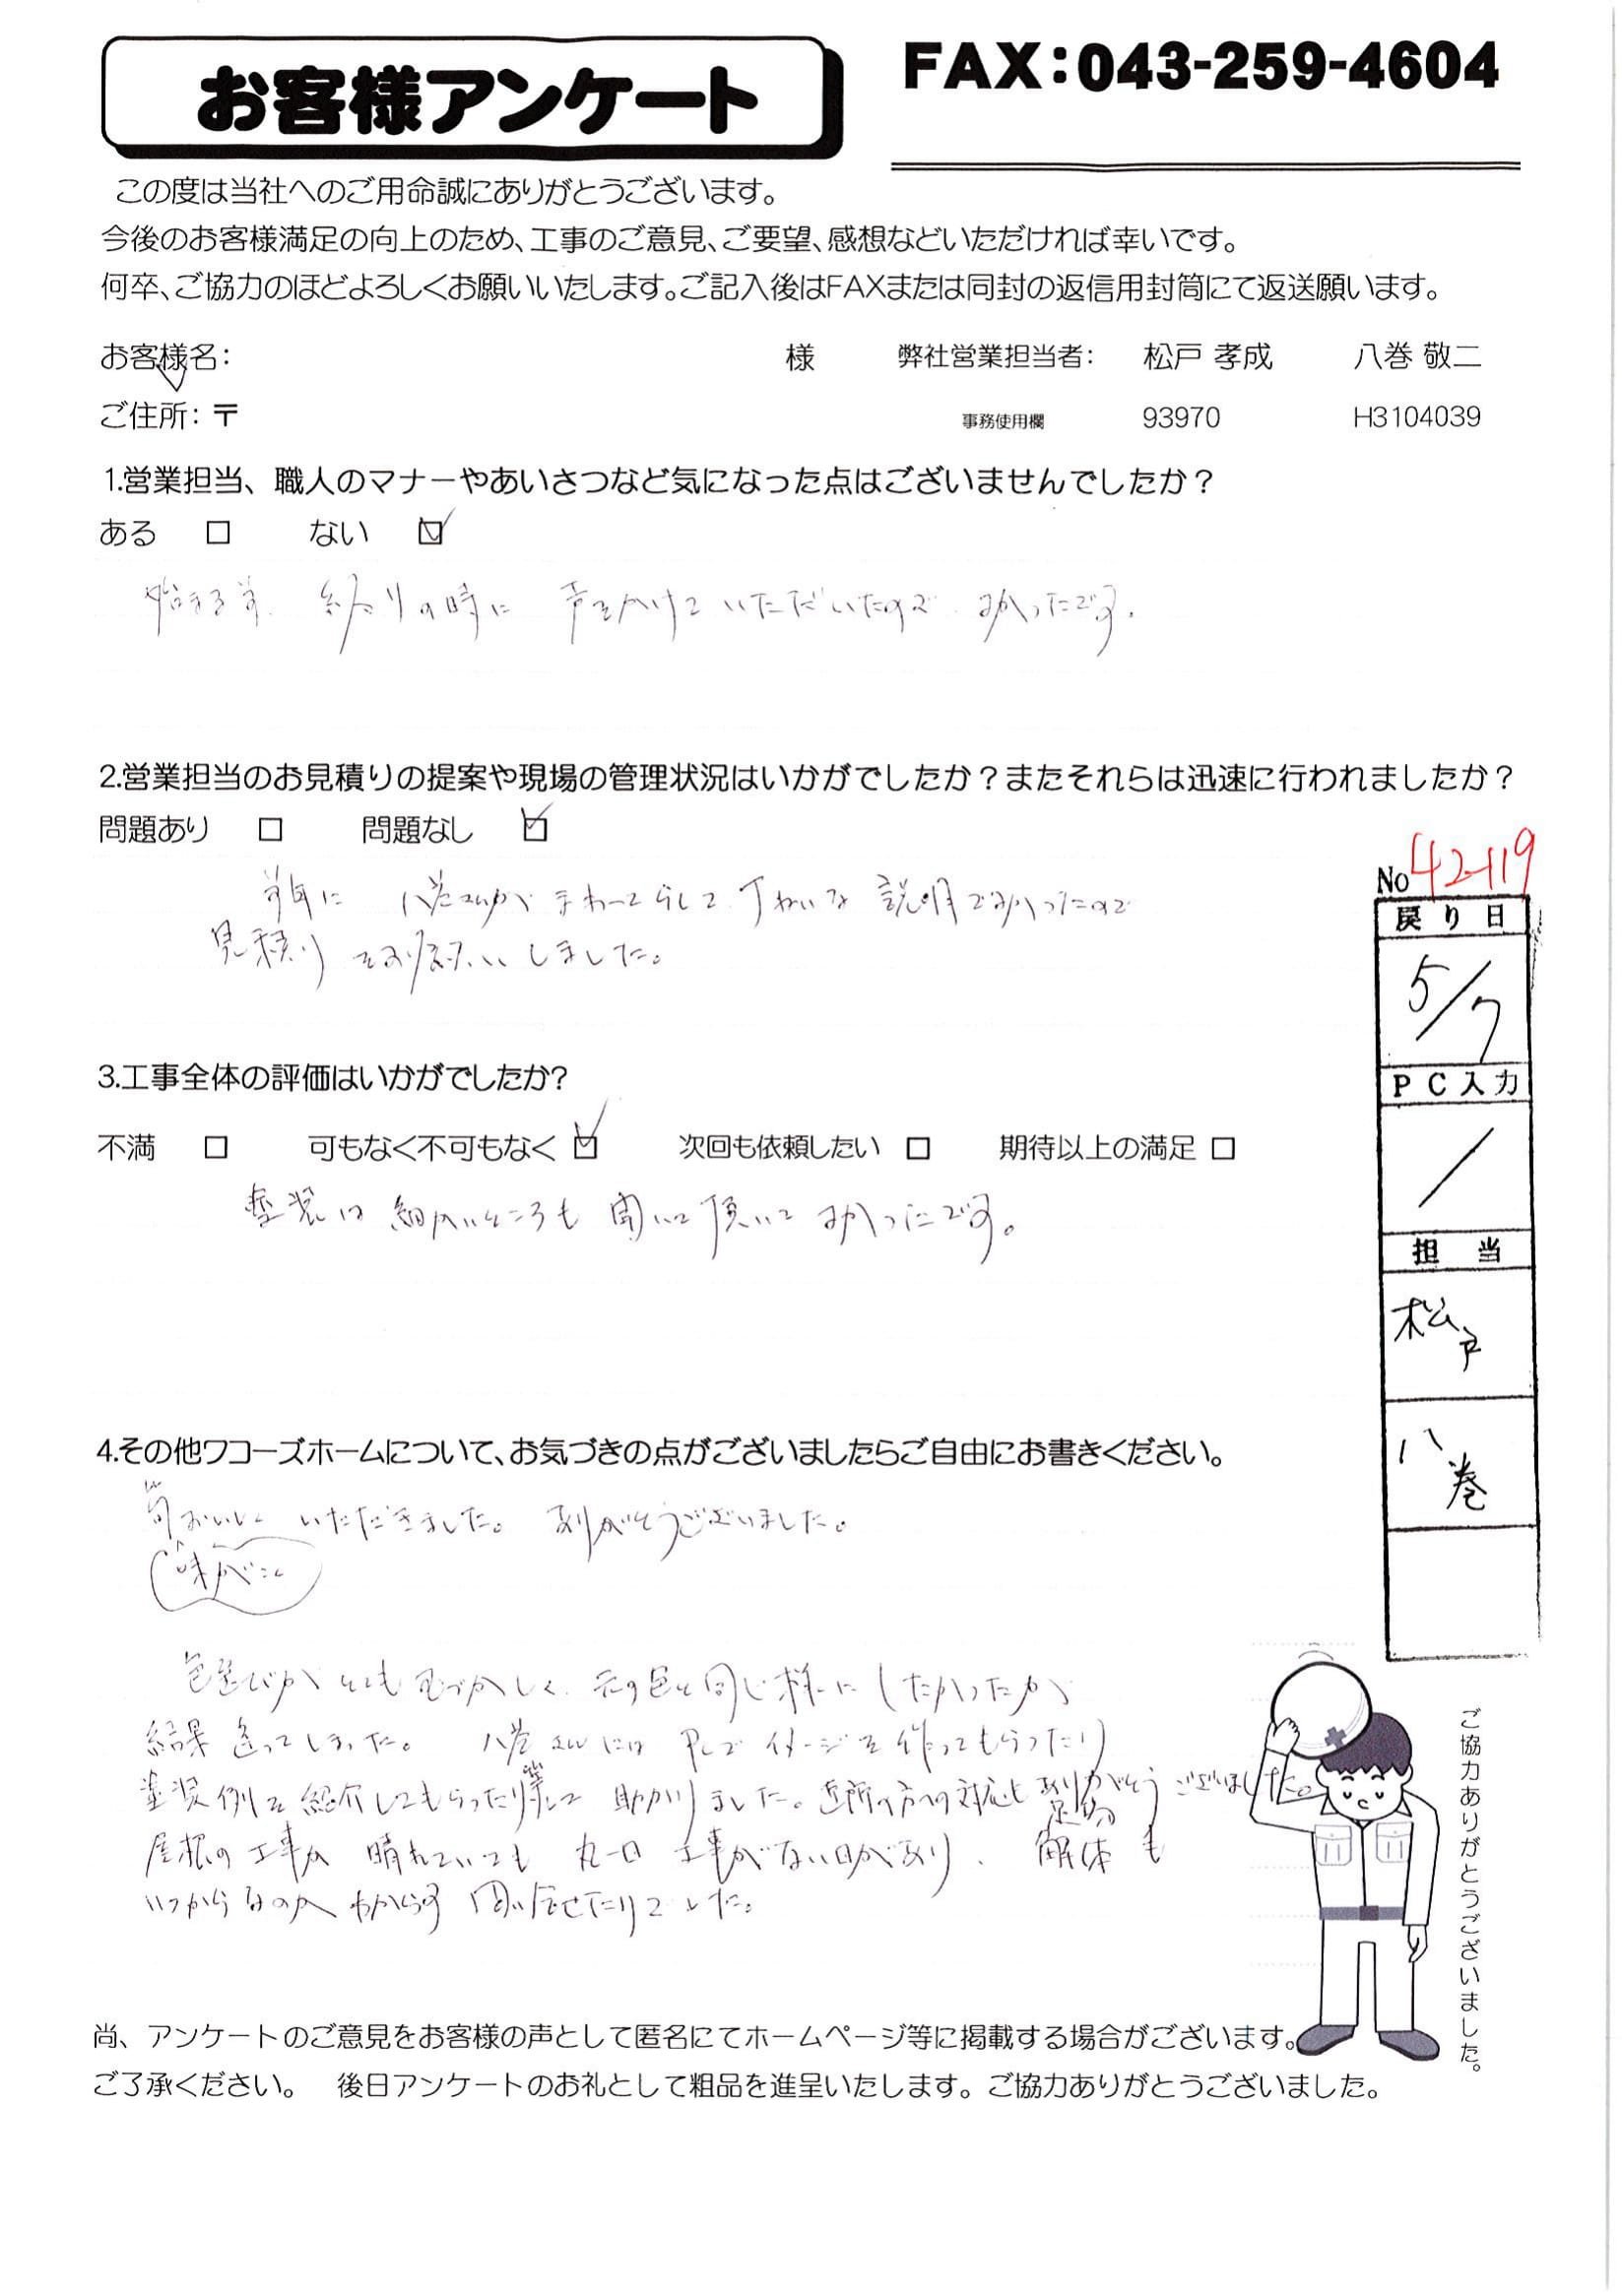 お客様アンケート
FAX:043-259-4604
この度は当社へのご用命誠にありがとうございます。
今後のお客様満足の向上のため、工事のご意見、ご要望、感想などいただければ幸いです。
何卒、ご協力のほどよろしくお願いいたします。ご記入後はFAXまたは同封の返信用封筒にて返送願います。
お客様名： 様 弊社営業担当者： 松戸 孝成 八巻 敬二
ご住所：〒 事務使用欄 93970 H3104039
1.営業担当、職人のマナーやあいさつなど気になった点はございませんでしたか？
ある □ ない ☑
始まる前、終りの時に 声をかけていただいたので よかったです。
2.営業担当のお見積りの提案や現場の管理状況はいかがでしたか？またそれらは迅速に行われましたか？
問題あり □ 問題なし ☑
八巻さんが まわってらして 丁ねいな 説明でよかったので
見積り をお願いしました。
3.工事全体の評価はいかがでしたか？
不満 □ 可もなく不可もなく ☑ 次回も依頼したい □ 期待以上の満足 □
塗装は 細かいところも 聞いて頂いて よかったです。
4.その他ワコーズホームについて、お気づきの点がございましたらご自由にお書きください。
筍おいしく いただきました。 ありがとうございました。
色選びが とても むづかしく、元の色と同じ様にしたかったが
結果 違ってしまった。 八巻さんには PCで イメージを作ってもらったり
塗装例を紹介してもらったり等して 助かりました。近所の方への対応もありがとうございました。
屋根の工事が 晴れていても 丸一日 工事がない日があり、 足場解体も
いつからなのか わからず 問い合せたりでした。
No 42119
戻り日
5/7
PC入力
/
担当
松戸
八巻
ご協力ありがとうございました。
尚、アンケートのご意見をお客様の声として匿名にてホームページ等に掲載する場合がございます。
ご了承ください。 後日アンケートのお礼として粗品を進呈いたします。ご協力ありがとうございました。